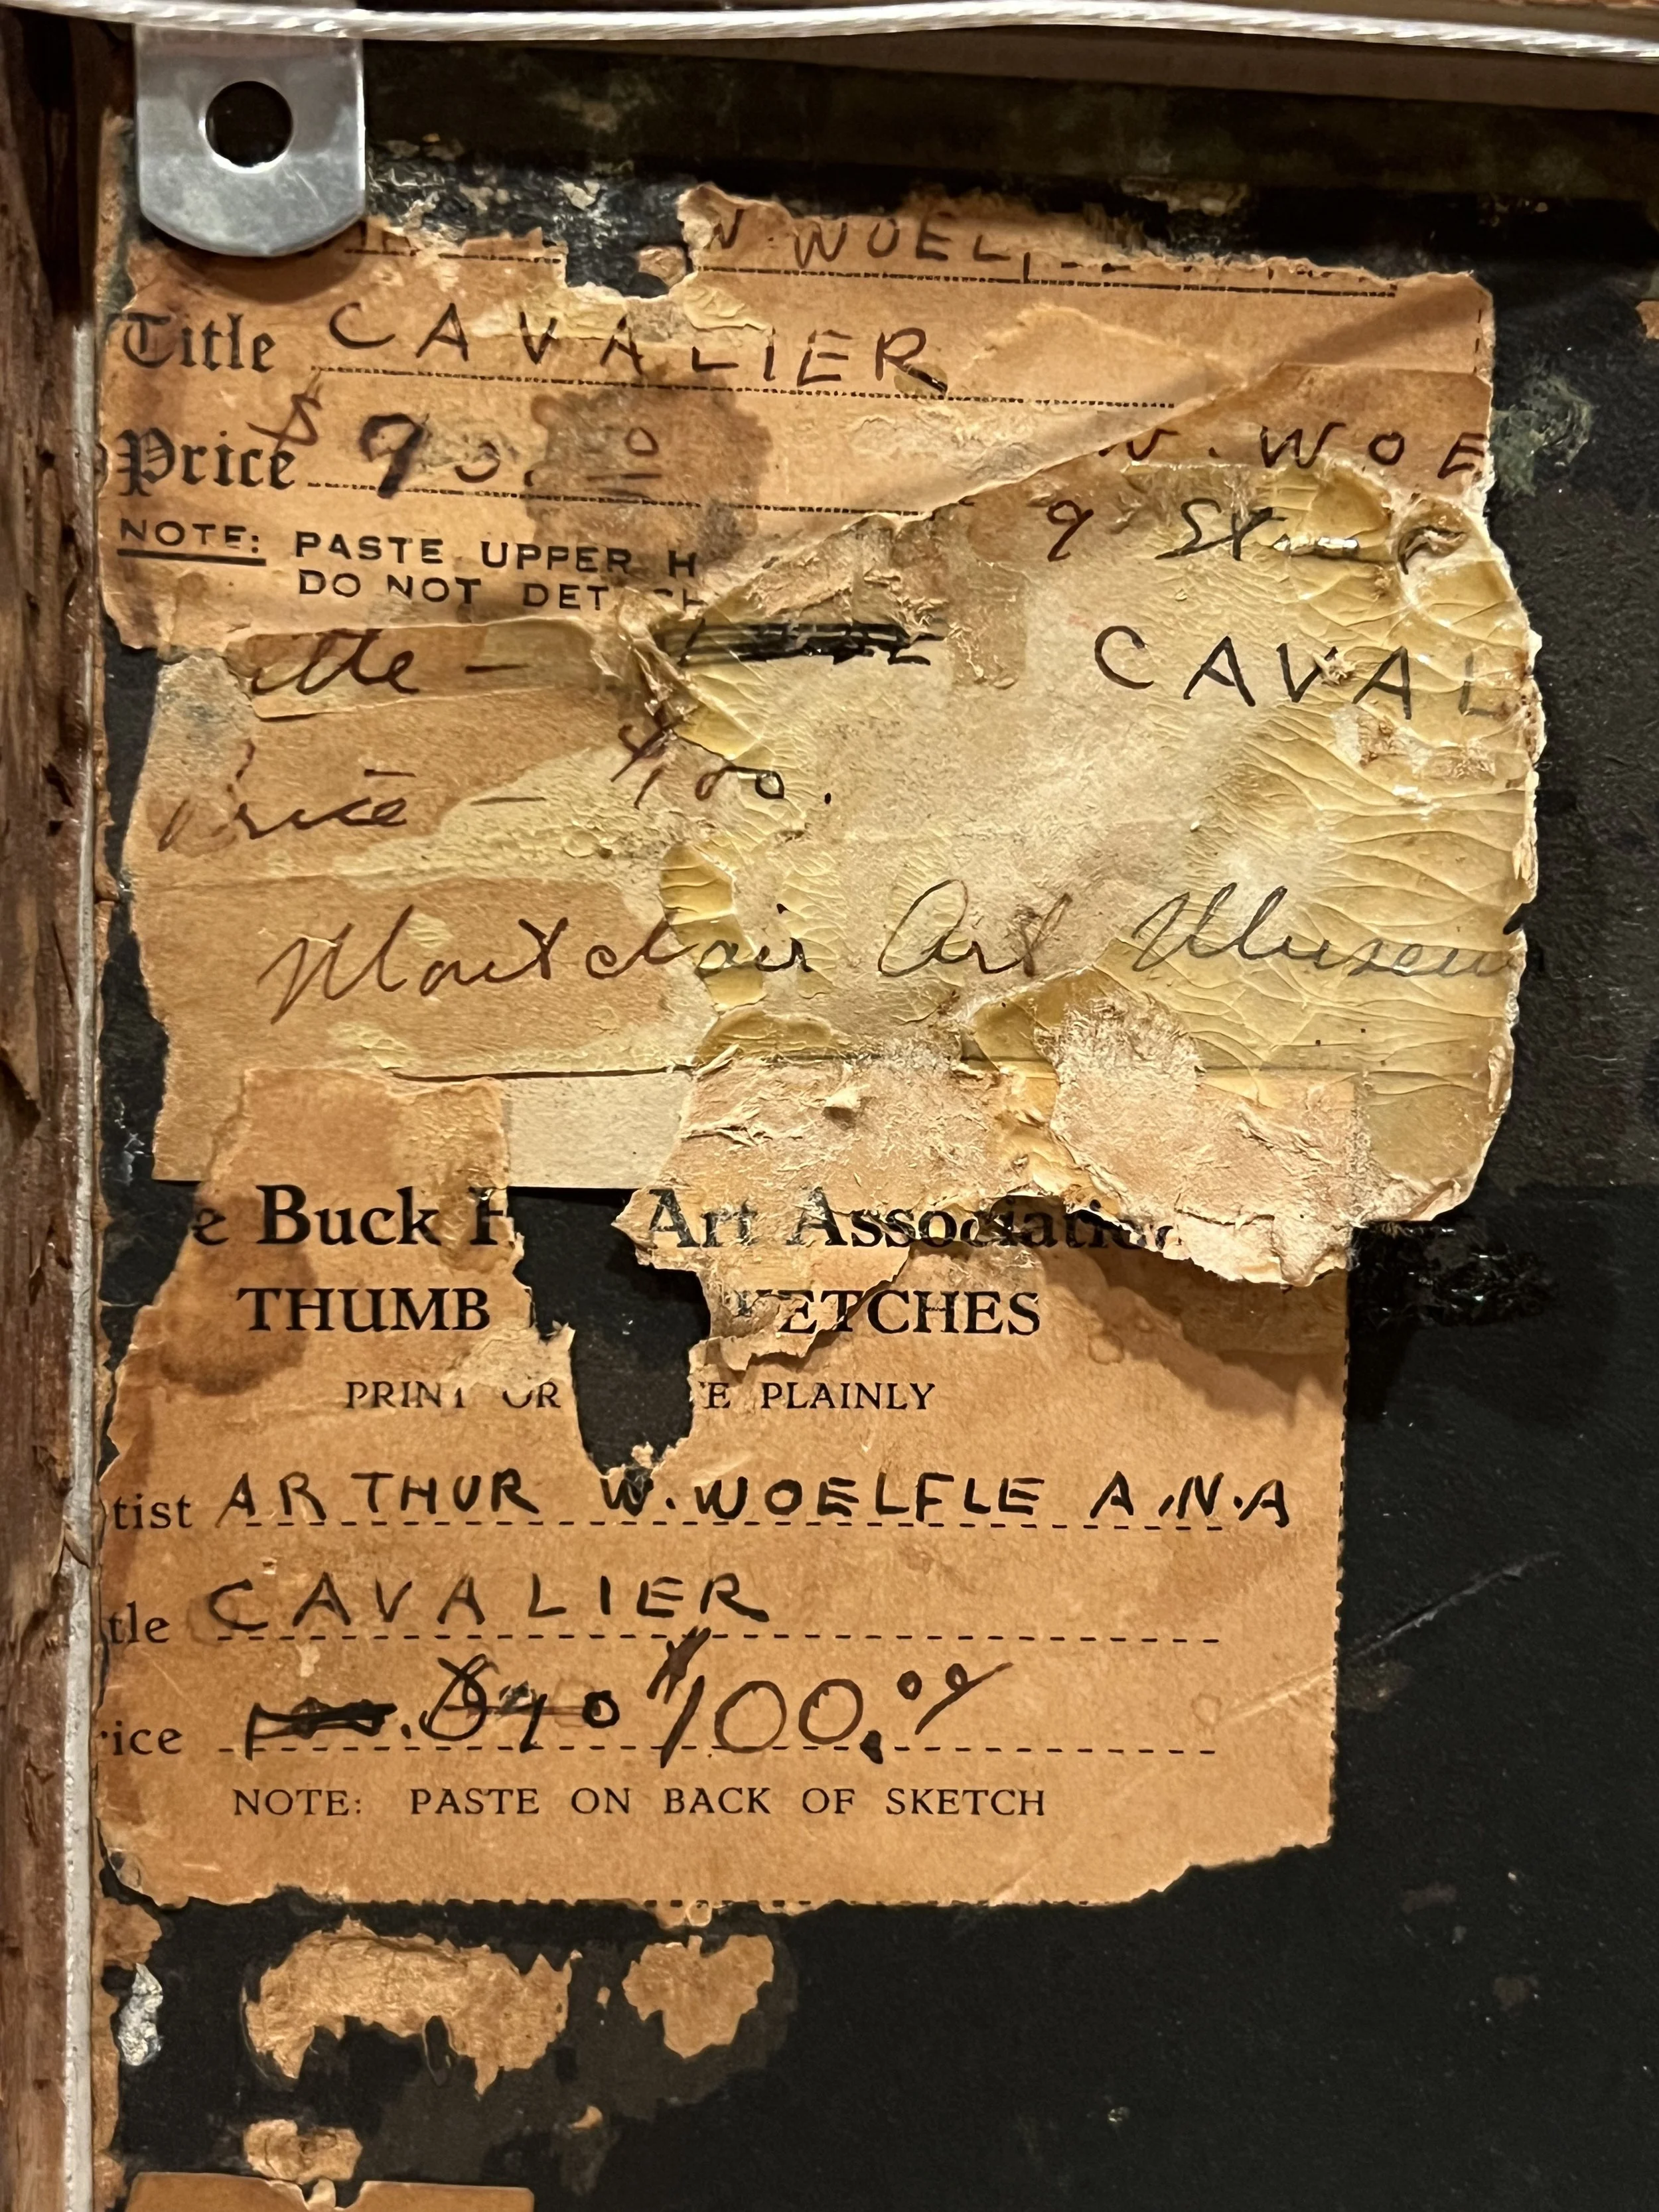 W. WOEL
Title CAVALIER
Price $ 90.
W. WOE
NOTE: PASTE UPPER H
DO NOT DET CH
9 St.
CAVAL
Price - $100.
Montclair Art Museum
e Buck H Art Association
THUMB KETCHES
PRINT OR E PLAINLY
tist ARTHUR W. WOELFLE A.N.A
tle CAVALIER
rice $100.00
NOTE: PASTE ON BACK OF SKETCH